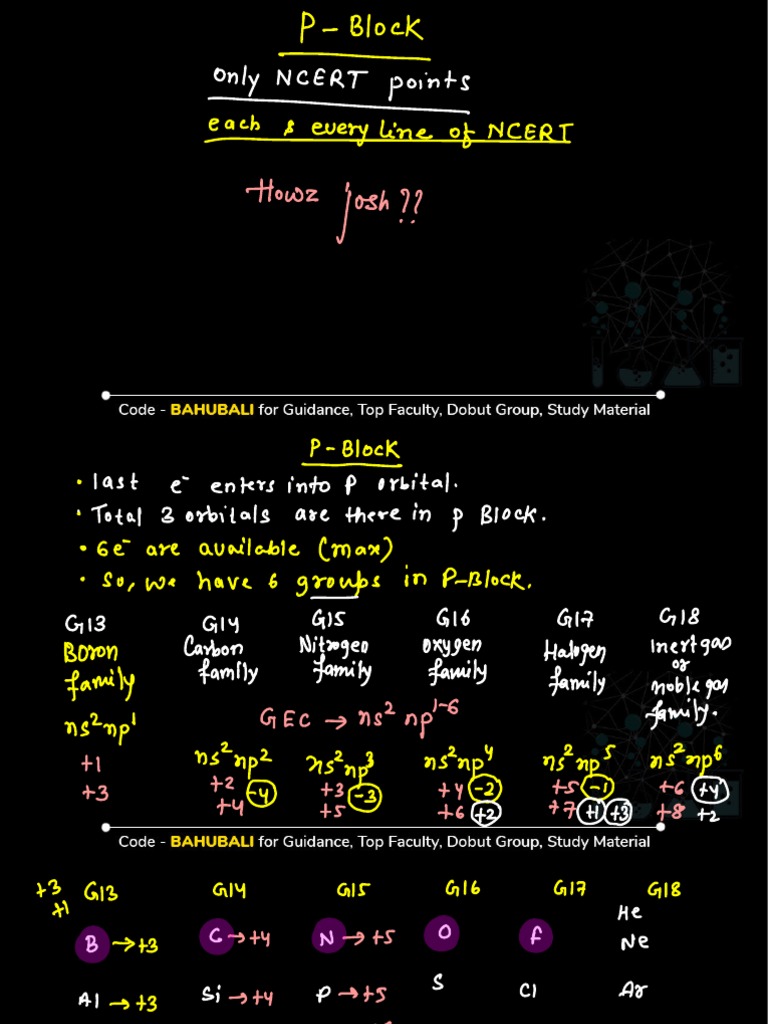 P-Block
only NCERT points
each & every line of NCERT
Howz josh??
Code - BAHUBALI for Guidance, Top Faculty, Dobut Group, Study Material
P-Block
• last e⁻ enters into P orbital.
• Total 3 orbitals are there in p Block.
• 6e⁻ are available (max)
• So, we have 6 groups in P-Block.
G13 G14 G15 G16 G17 G18
Boron family Carbon family Nitrogen family Oxygen family Halogen family Inert gas or noble gas family.
GEC → ns² np¹⁻⁶
ns²np¹ ns²np² ns²np³ ns²np⁴ ns²np⁵ ns²np⁶
+1 +2 -4 +3 -3 +4 -2 +5 -1 +6 +4
+3 +4 +5 +6 +2 +7 +1 +3 +8 +2
Code - BAHUBALI for Guidance, Top Faculty, Dobut Group, Study Material
+3 +1 G13 G14 G15 G16 G17 G18
He
B → +3 C → +4 N → +5 O F Ne
Al → +3 Si → +4 P → +5 S Cl Ar